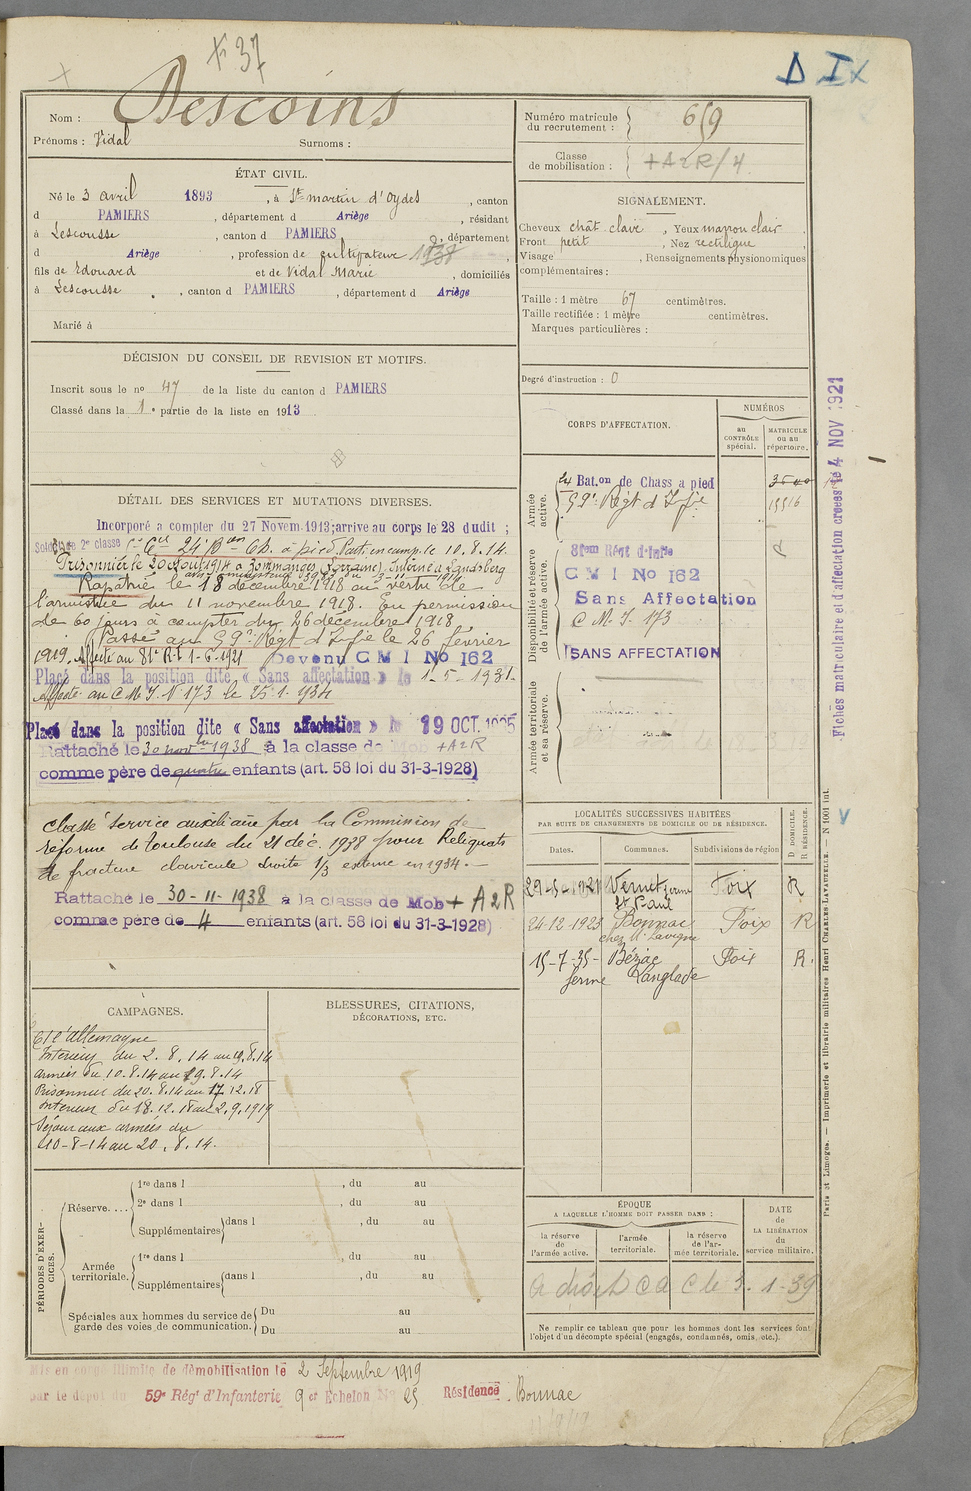 + 37
Δ IX
Nom : Descoins
Prénoms : Vidal Surnoms :
Numéro matricule du recrutement : 659
Classe de mobilisation : + A2R/4
ÉTAT CIVIL.
Né le 3 avril 1893, à St martin d'oydes, canton
d PAMIERS, département d Ariège, résidant
à Lescousse, canton d PAMIERS, département
d Ariège, profession de cultivateur
fils de Edouard et de Vidal Marie, domiciliés
à Lescousse, canton d PAMIERS, département d Ariège
Marié à
SIGNALEMENT.
Cheveux chât clair, Yeux marron clair,
Front petit, Nez rectiligne,
Visage, Renseignements physionomiques
complémentaires :
Taille : 1 mètre 67 centimètres.
Taille rectifiée : 1 mètre centimètres.
Marques particulières :
Degré d'instruction : 0
DÉCISION DU CONSEIL DE REVISION ET MOTIFS.
Inscrit sous le no 47 de la liste du canton d PAMIERS
Classé dans la 1e partie de la liste en 1913
DÉTAIL DES SERVICES ET MUTATIONS DIVERSES.
Incorporé a compter du 27 Novem. 1913; arrive au corps le 28 dudit ;
Soldat de 2e classe 24e Bon Ch. à pied. Parti en camp. le 10.8.14.
Prisonnier le 20 Aout 1914 à Zommanges (Lorraine). Interné à Landsberg
Rapatrié le 18 décembre 1918 en vertu de
l'armistice du 11 novembre 1918. En permission
de 60 jours à compter du 26 décembre 1918
Passé au 59e Régt d'Infie le 26 février
1919. Affecté au 81e RI 1-6-1921 Devenu C M I No 162
Placé dans la position dite « Sans affectation » le 1-5-1931.
Affecté au C.M.I. No 173 le 25.1.1934
Placé dans la position dite « Sans affectation » le 19 OCT. 1935
Rattaché le 30 novbre 1938 à la classe de Mob + A2R
comme père de quatre enfants (art. 58 loi du 31-3-1928)
Classé service auxiliaire par la Commission de
réforme de Toulouse du 21 déc. 1938 pour Reliquats
de fracture clavicule droite 1/3 externe en 1934.
Rattaché le 30-11-1938 à la classe de Mob + A2R
comme père de 4 enfants (art. 58 loi du 31-3-1928)
CORPS D'AFFECTATION.
NUMÉROS
au CONTRÔLE spécial.
MATRICULE ou au répertoire.
Armée active.
24 Bat.on de Chass a pied
59e Régt d'Infie
15516
Disponibilité et réserve de l'armée active.
81em Rént d'Infie
C M I No 162
Sans Affectation
C.M.I. 173
SANS AFFECTATION
Armée territoriale et sa réserve.
Fiches matriculaire et d'affectation creees le 4 NOV 1921
LOCALITÉS SUCCESSIVES HABITÉES
PAR SUITE DE CHANGEMENTS DE DOMICILE OU DE RÉSIDENCE.
D DOMICILE.
R RÉSIDENCE.
Dates. Communes. Subdivisions de région
29-5-1921 Vernet ferme St Paul Foix R
24-12-1923 Bonnac chez Mr Lavigne Foix R
15-7-35- Bézac ferme Langlade Foix R.
CAMPAGNES.
Cte l'allemagne
Intérieur du 2.8.14 au 9.8.14
armées du 10.8.14 au 19.8.14
Prisonnier du 20.8.14 au 17.12.18
Intérieur du 18.12.18 au 2.9.1919
Séjour aux armées du
10-8-14 au 20.8.14.
BLESSURES, CITATIONS,
DÉCORATIONS, ETC.
PÉRIODES D'EXERCICES.
Réserve....
1re dans l , du au
2e dans l , du au
Supplémentaires dans l , du au
Armée territoriale.
1re dans l , du au
Supplémentaires dans l , du au
Spéciales aux hommes du service de
garde des voies de communication.
Du au
Du au
ÉPOQUE
A LAQUELLE L'HOMME DOIT PASSER DANS :
la réserve de l'armée active.
l'armée territoriale.
la réserve de l'armée territoriale.
DATE DE LA LIBÉRATION du service militaire.
A droit C a C le 3.1-39
Ne remplir ce tableau que pour les hommes dont les services font
l'objet d'un décompte spécial (engagés, condamnés, omis, etc.).
Paris et Limoges. — Imprimerie et librairie militaires Henri CHARLES-LAVAUZELLE. — N 1001 int.
Mis en congé illimité de démobilisation le 2 Septembre 1919
par le dépôt du 59e Rég't d'Infanterie 9 et Echelon No 25 Résidence Bonnac